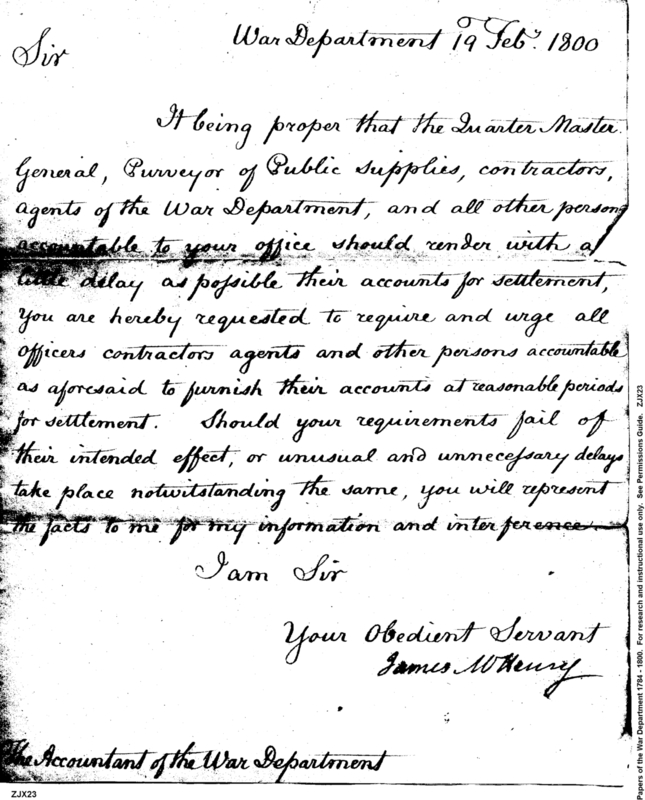 War Department 19 Feby. 1800
Sir
It being proper that the Quarter Master
General, Purveyor of Public supplies, contractors,
agents of the War Department, and all other persons
accountable to your office should render with a
little delay as possible their accounts for settlement,
you are hereby requested to require and urge all
officers contractors agents and other persons accountable
as aforesaid to furnish their accounts at reasonable periods
for settlement. Should your requirements fail of
their intended effect, or unusual and unnecessary delays
take place notwitstanding the same, you will represent
the facts to me for my information and interference.
I am Sir
Your Obedient Servant
James McHenry
The Accountant of the War Department
ZJX23
Papers of the War Department 1784 - 1800. For research and instructional use only. See Permissions Guide. ZJX23